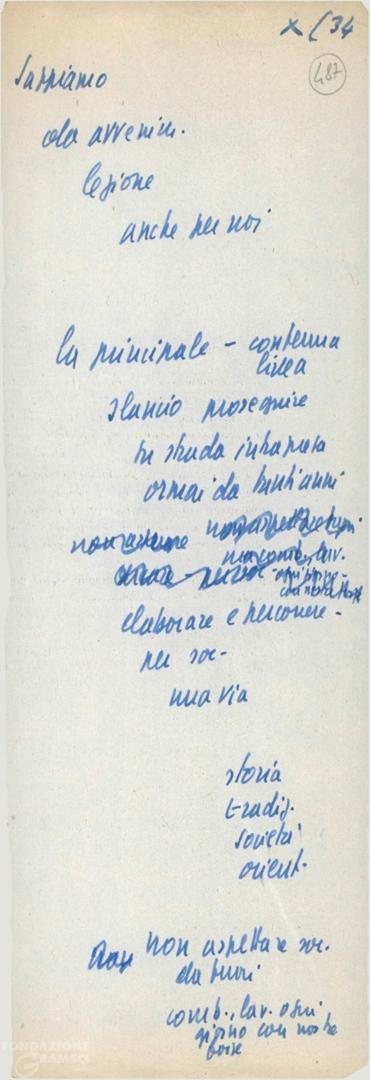 X/34
487
sappiamo
da avvenim.
lezione
anche per noi
la principale - conferma
linea
slancio proseguire
su strada intrapresa
ormai da tanti anni
non
elaborare e percorrere -
per soc -
nuova via
storia
tradiz.
società
orient.
non aspettare soc.
da fuori
comb., lav. ogni
giorno con nostre
forze
FONDAZIONE
GRAMSCI